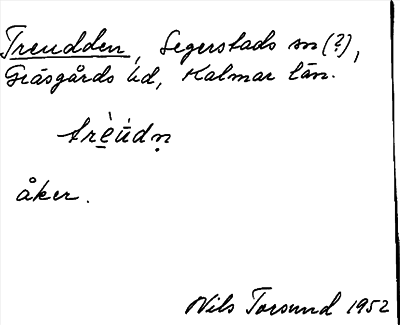 Treudden, Segerstads sn (?),
Gräsgårds hd, Kalmar län.
trèúdṇ
åker.
Nils Torsund 1952